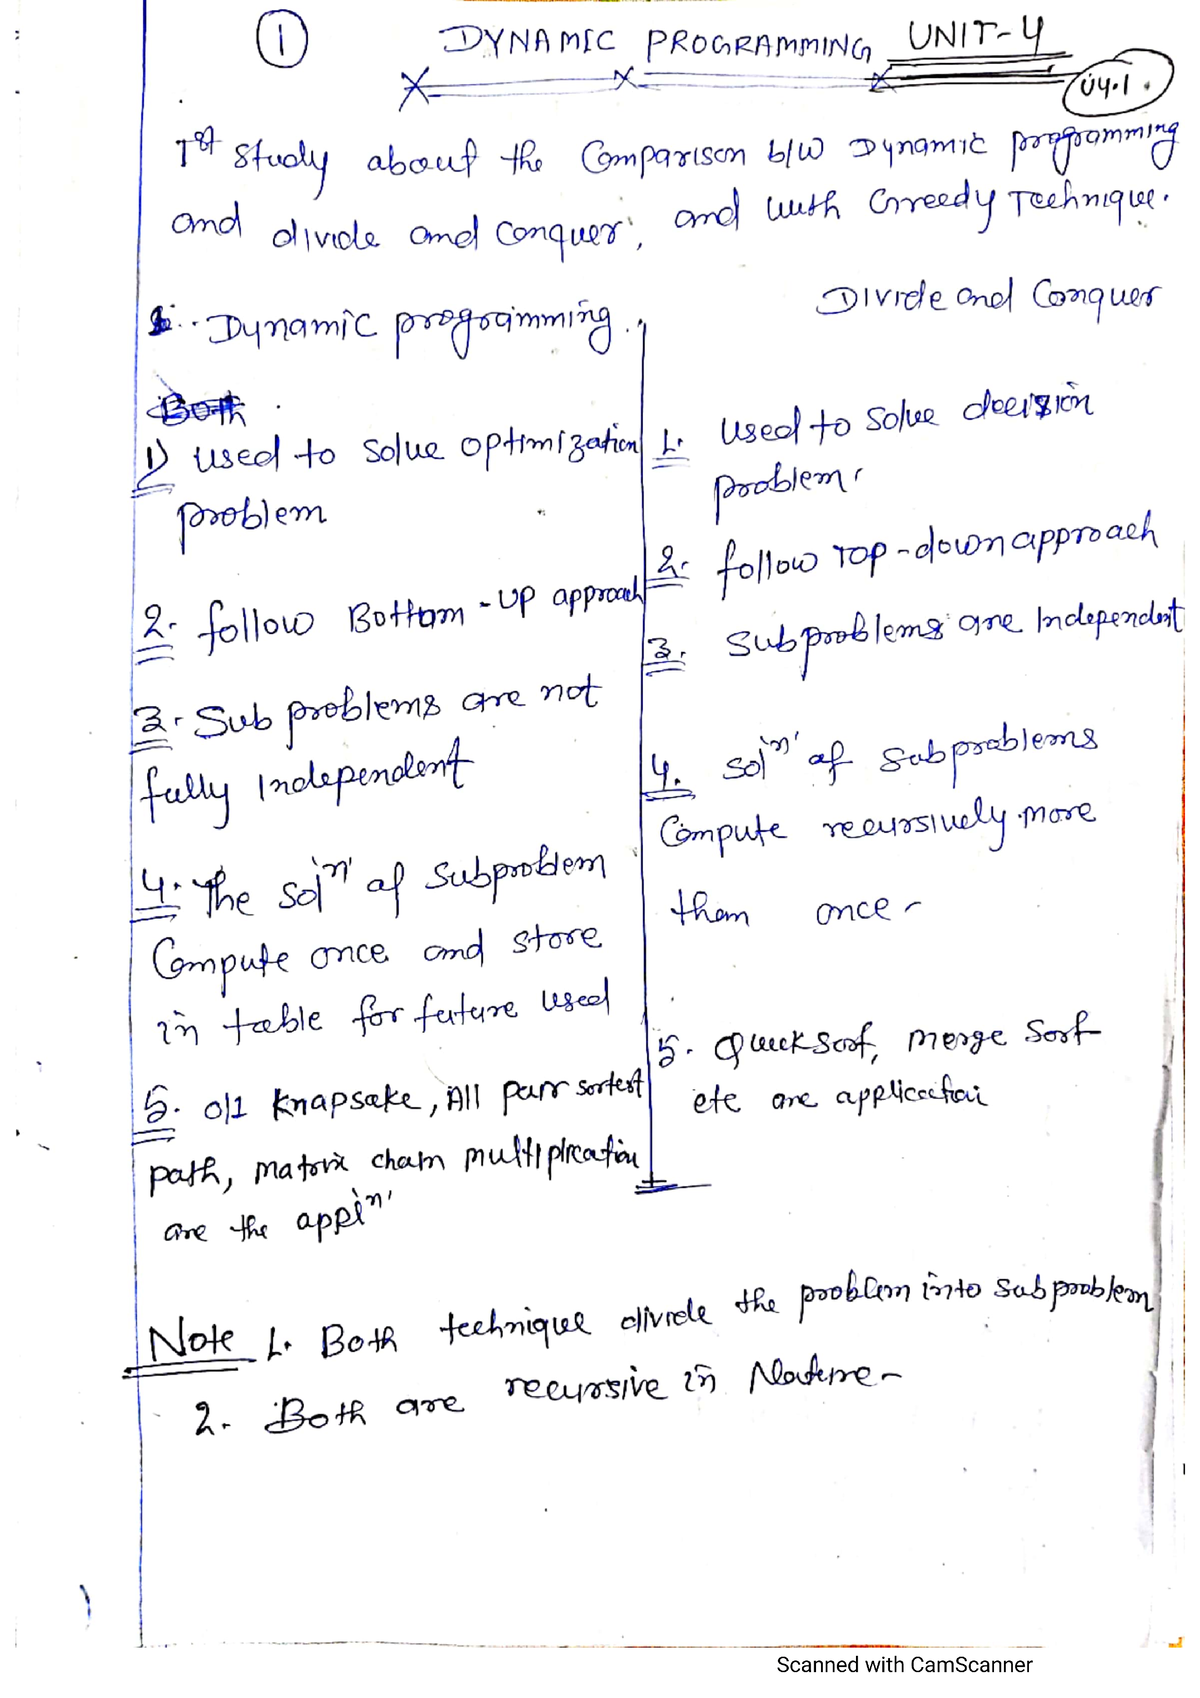 1
DYNAMIC PROGRAMMING UNIT-4
U4.1
1st study about the Comparison b/w Dynamic programming
and divide and Conquer, and with Greedy Technique.
Dynamic programming.
Divide and Conquer
Both
1) used to solve optimization
problem
2. follow Bottom-up approach
3. Sub problems are not
fully Independent
4. The soln of subproblem
Compute once and store
in table for future used
5. 0/1 knapsake, All pair sortest
path, matrix chain multiplication
are the appln
1. used to solve decision
problem.
2. follow Top-down approach
3. Subproblems are Independent
4. soln of subproblems
Compute recursively more
than once
5. Quick sort, merge sort
etc are application
Note 1. Both technique divide the problem into subproblem
2. Both are recursive in Nature
Scanned with CamScanner